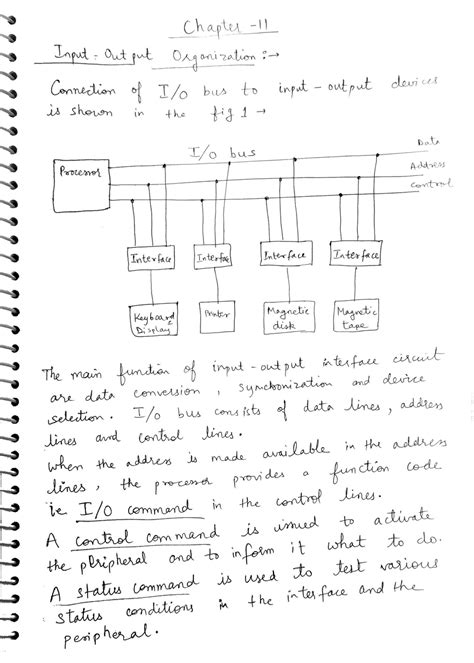 Chapter - 11
Input - Output Organization :→
Connection of I/O bus to input - output devices
is shown in the fig 1 →
I/O bus
Data
Processor
Address
Control
Interface
Interface
Interface
Interface
Keyboard &
Display
Printer
Magnetic
disk
Magnetic
tape
The main function of input - output interface circuit
are data conversion, synchronization and device
selection. I/O bus consists of data lines, address
lines and control lines.
when the address is made available in the address
lines, the processor provides a function code
ie I/O command in the control lines.
A control command is issued to activate
the peripheral and to inform it what to do.
A status command is used to test various
status conditions in the interface and the
peripheral.